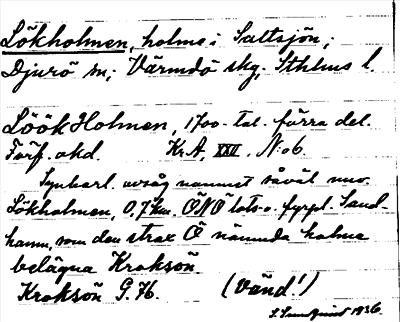 Lökholmen, holme i Saltsjön;
Djurö sn; Värmdö skg, Sthlms l.
Löök Holmen, 1700-tal. förra del.
Förf. okd. Kr.A, XXII. N:o 6.
Synbarl. avsåg namnet såväl nuv.
Lökholmen, 0,7 km. ÖNÖ lots- o. fyrpl. Sand-
hamn, som den strax Ö nämnda holme
belägna Kroksön.
Kroksön G. 76. (Vänd!)
1936